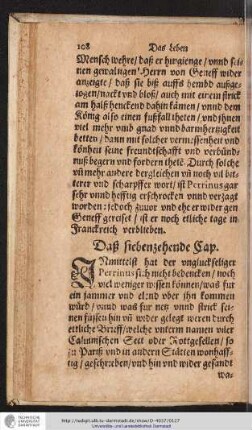 108 Das Leben
Mensch wehre/ daß er hingienge/ vnnd sei-
nen gewaltigen Herrn von Geneff wider
anzeigte/ daß sie biß auffs hembd außge-
zogen/ nackt vnd bloß/ auch mit einem strick
am halß henckend dahin kämen/ vnnd dem
König also einen fußfall theten/ vnd jhnen
viel mehr vmb gnad vnnd barmhertzigkeit
betten/ dann mit solcher vermessenheit vnd
könheit seine freundtschafft vnd verbünd-
nuß begern vnd fordern thete. Durch solche
vñ mehr andere dergleichen vñ noch vil bit-
terer vnd scharpffer wort/ ist Perrinus gar
sehr vnnd hefftig erschrocken vnnd verzagt
worden: jedoch zuuor vnd ehe er wider gen
Geneff gereiset/ ist er noch etliche tage in
Franckreich verblieben.
Daß siebenzehende Cap.
INmittelst hat der vngluckseliger
Perrinus sich nicht bedencken/ noch
viel weniger wissen können/ was fur
ein jammer vnd elend vber ihn kommen
würd/ vnnd was fur netz vnnd strick sei-
nen füssen hin vñ wider gelegt weren durch
etliche Brieff/ welche vnterm namen viler
Caluinischen Sect oder Rottgesellen/ so
zu Paryß vnd in andern Stätten wonhafft-
tig/ geschrieben/ vnd hin vnd wider gesandt
wa-
Universitäts- und Landesbibliothek Darmstadt